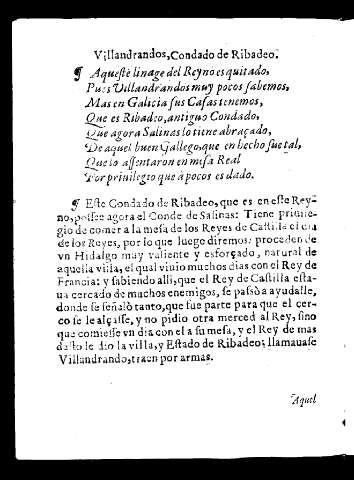 Villandrandos, Condado de Ribadeo.
¶ Aqueste linage del Reyno es quitado,
Pues Villandrandos muy pocos sabemos,
Mas en Galicia sus Casas tenemos,
Que es Ribadeo, antiguo Condado,
Que agora Salinas lo tiene abraçado,
De aquel buen Gallego, que en hecho fue tal,
Que lo assentaron en mesa Real
Por priuilegio que à pocos es dado.
¶ Este Condado de Ribadeo, que es en este Rey-
no, possee agora el Conde de Salinas: Tiene priuile-
gio de comer a la mesa de los Reyes de Castilla el dia
de los Reyes, por lo que luego diremos: proceden de
vn Hidalgo muy valiente y esforçado, natural de
aquella villa, el qual viuio muchos dias con el Rey de
Francia: y sabiendo alli, que el Rey de Castilla esta-
ua cercado de muchos enemigos, se passò a ayudalle,
donde se señalò tanto, que fue parte para que el cer-
co se le alçasse, y no pidio otra merced al Rey, sino
que comiesse vn dia con el a su mesa, y el Rey de mas
desto le dio la villa, y Estado de Ribadeo; llamauase
Villandrando, traen por armas.
Aquel